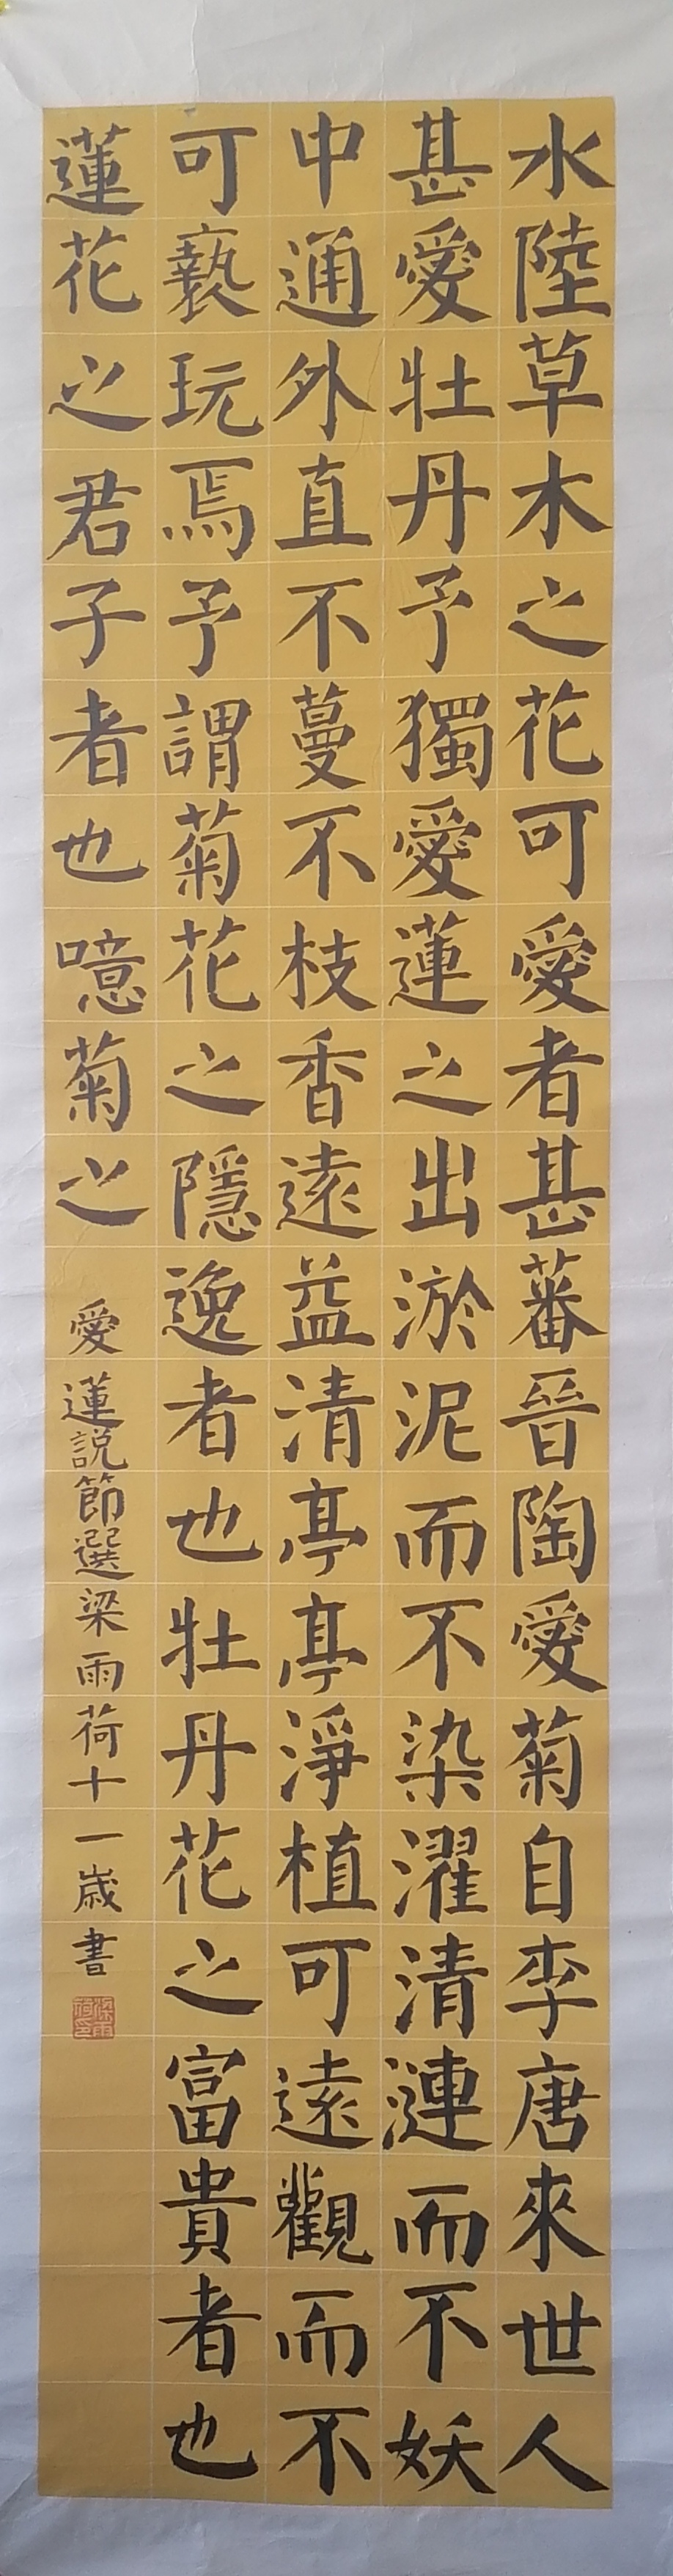 水陸草木之花可愛者甚蕃晉陶愛菊自李唐來世人
甚愛牡丹予獨愛蓮之出淤泥而不染濯清漣而不妖
中通外直不蔓不枝香遠益清亭亭淨植可遠觀而不
可褻玩焉予謂菊花之隱逸者也牡丹花之富貴者也
蓮花之君子者也噫菊之
愛蓮説節選梁雨荷十一歲書